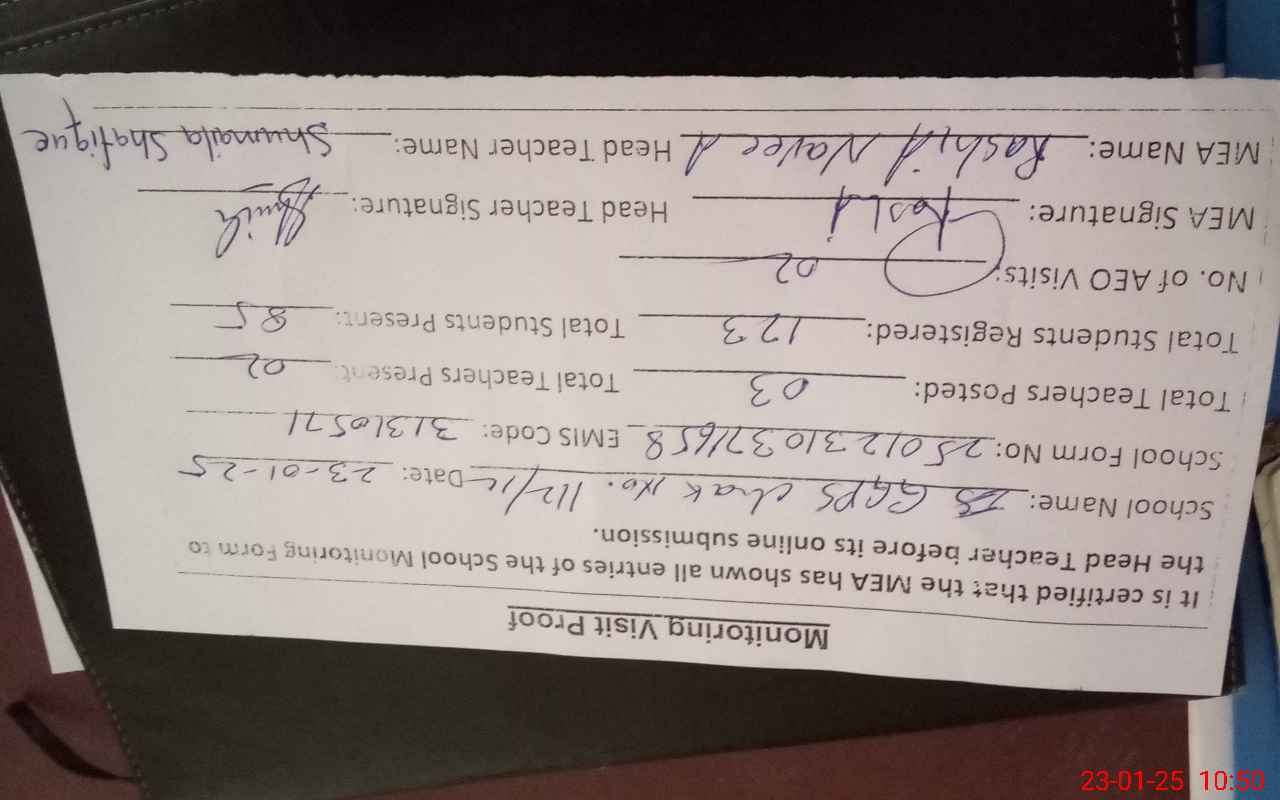 Monitoring Visit Proof
It is certified that the MEA has shown all entries of the School Monitoring Form to
the Head Teacher before its online submission.
School Name: GGPS chak No. 112/12 Date: 23-01-25
School Form No: 25012310371658 EMIS Code: 31310571
Total Teachers Posted: 03 Total Teachers Present: 02
Total Students Registered: 123 Total Students Present: 85
No. of AEO Visits: 02
MEA Signature: Rashid Head Teacher Signature:
MEA Name: Rashid Naveed Head Teacher Name: Shumaila Shafique
23-01-25 10:50